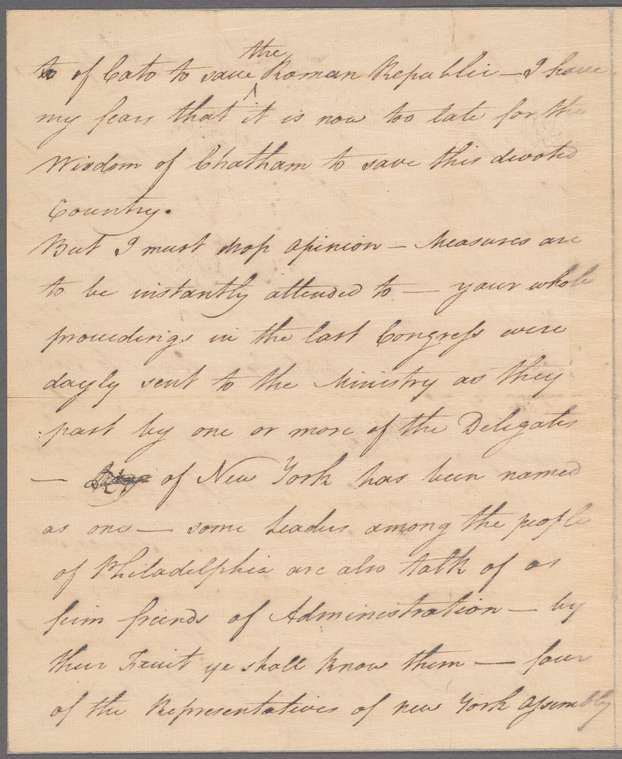 to of Cato to save the Roman Republic — I have
my fears that it is now too late for the
Wisdom of Chatham to save this devoted
Country.
But I must drop opinion — Measures are
to be instantly attended to — your whole
proceedings in the last Congress were
dayly sent to the Ministry as they
past by one or more of the Delegates
— of New York has been named
as one — some Leaders among the people
of Philadelphia are also talk of as
firm friends of Administration — by
their Fruit ye shall know them — four
of the Representatives of new York Assembly